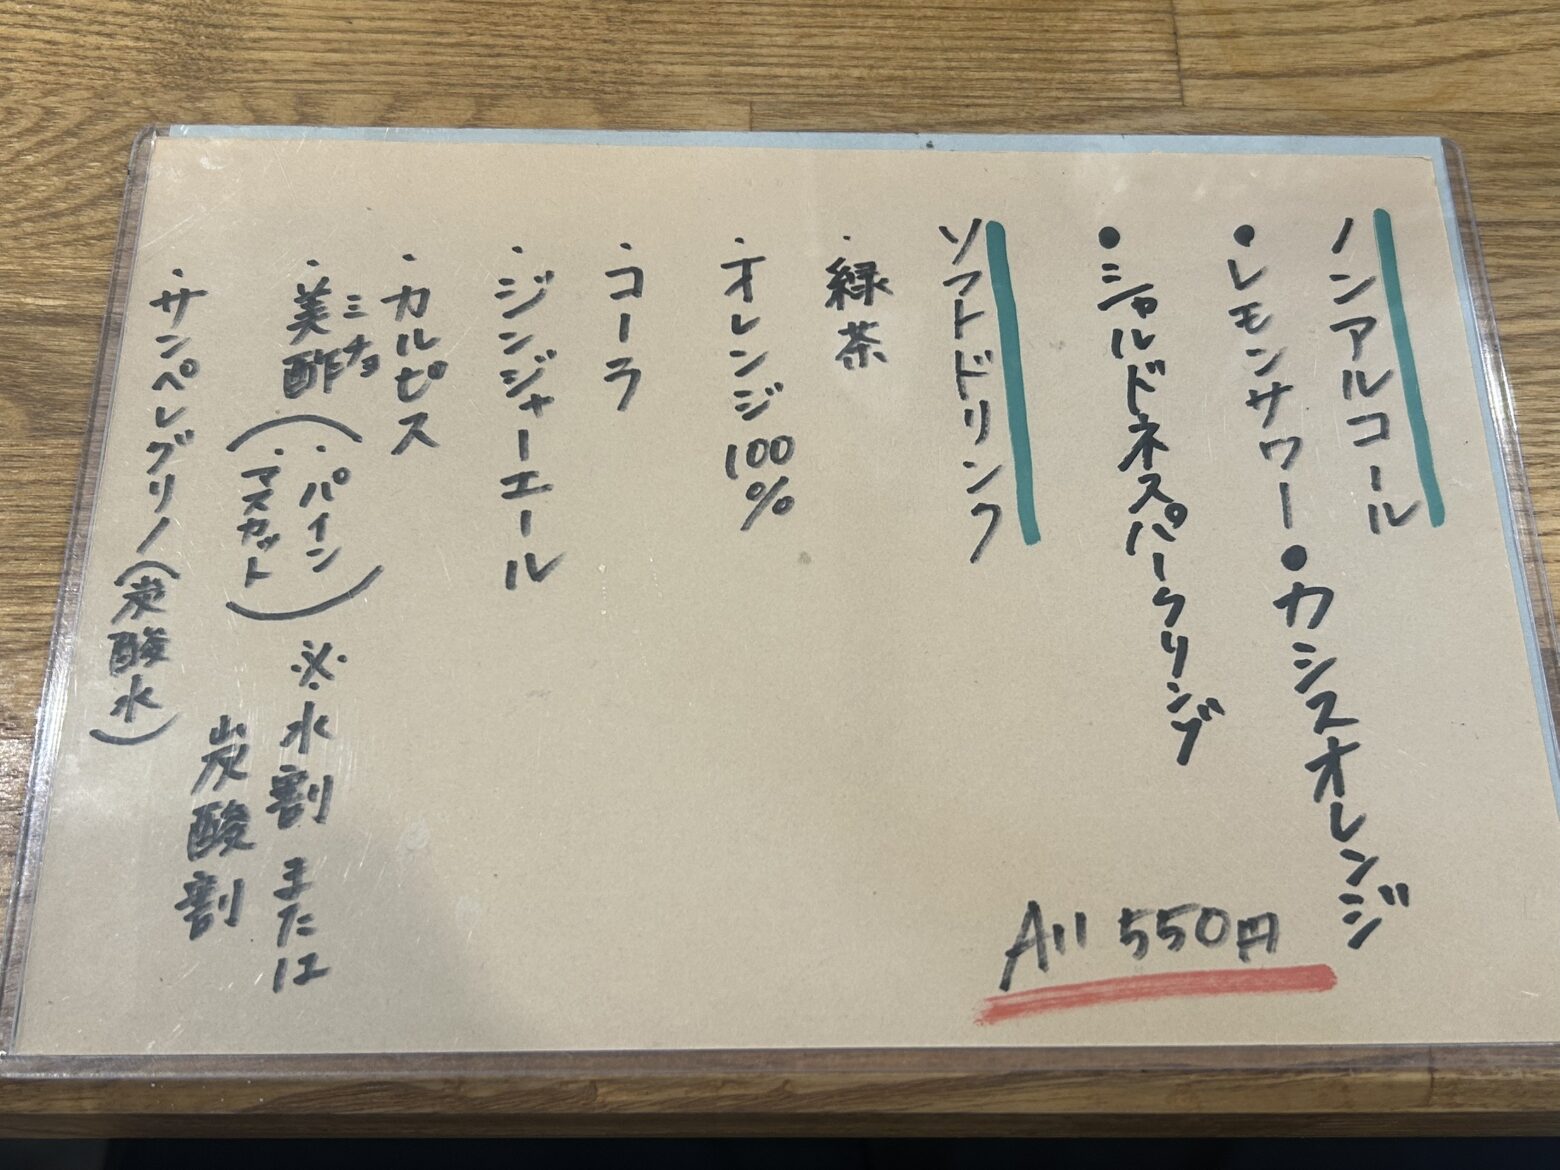 ノンアルコール
●レモンサワー ●カシスオレンジ
●シャルドネスパークリング
ソフトドリンク
・緑茶
・オレンジ100%
・コーラ
・ジンジャーエール
・カルピス
ミチョ
・美酢(・パイン
・マスカット)
※・水割または
炭酸割
・サンペレグリノ(炭酸水)
All 550円